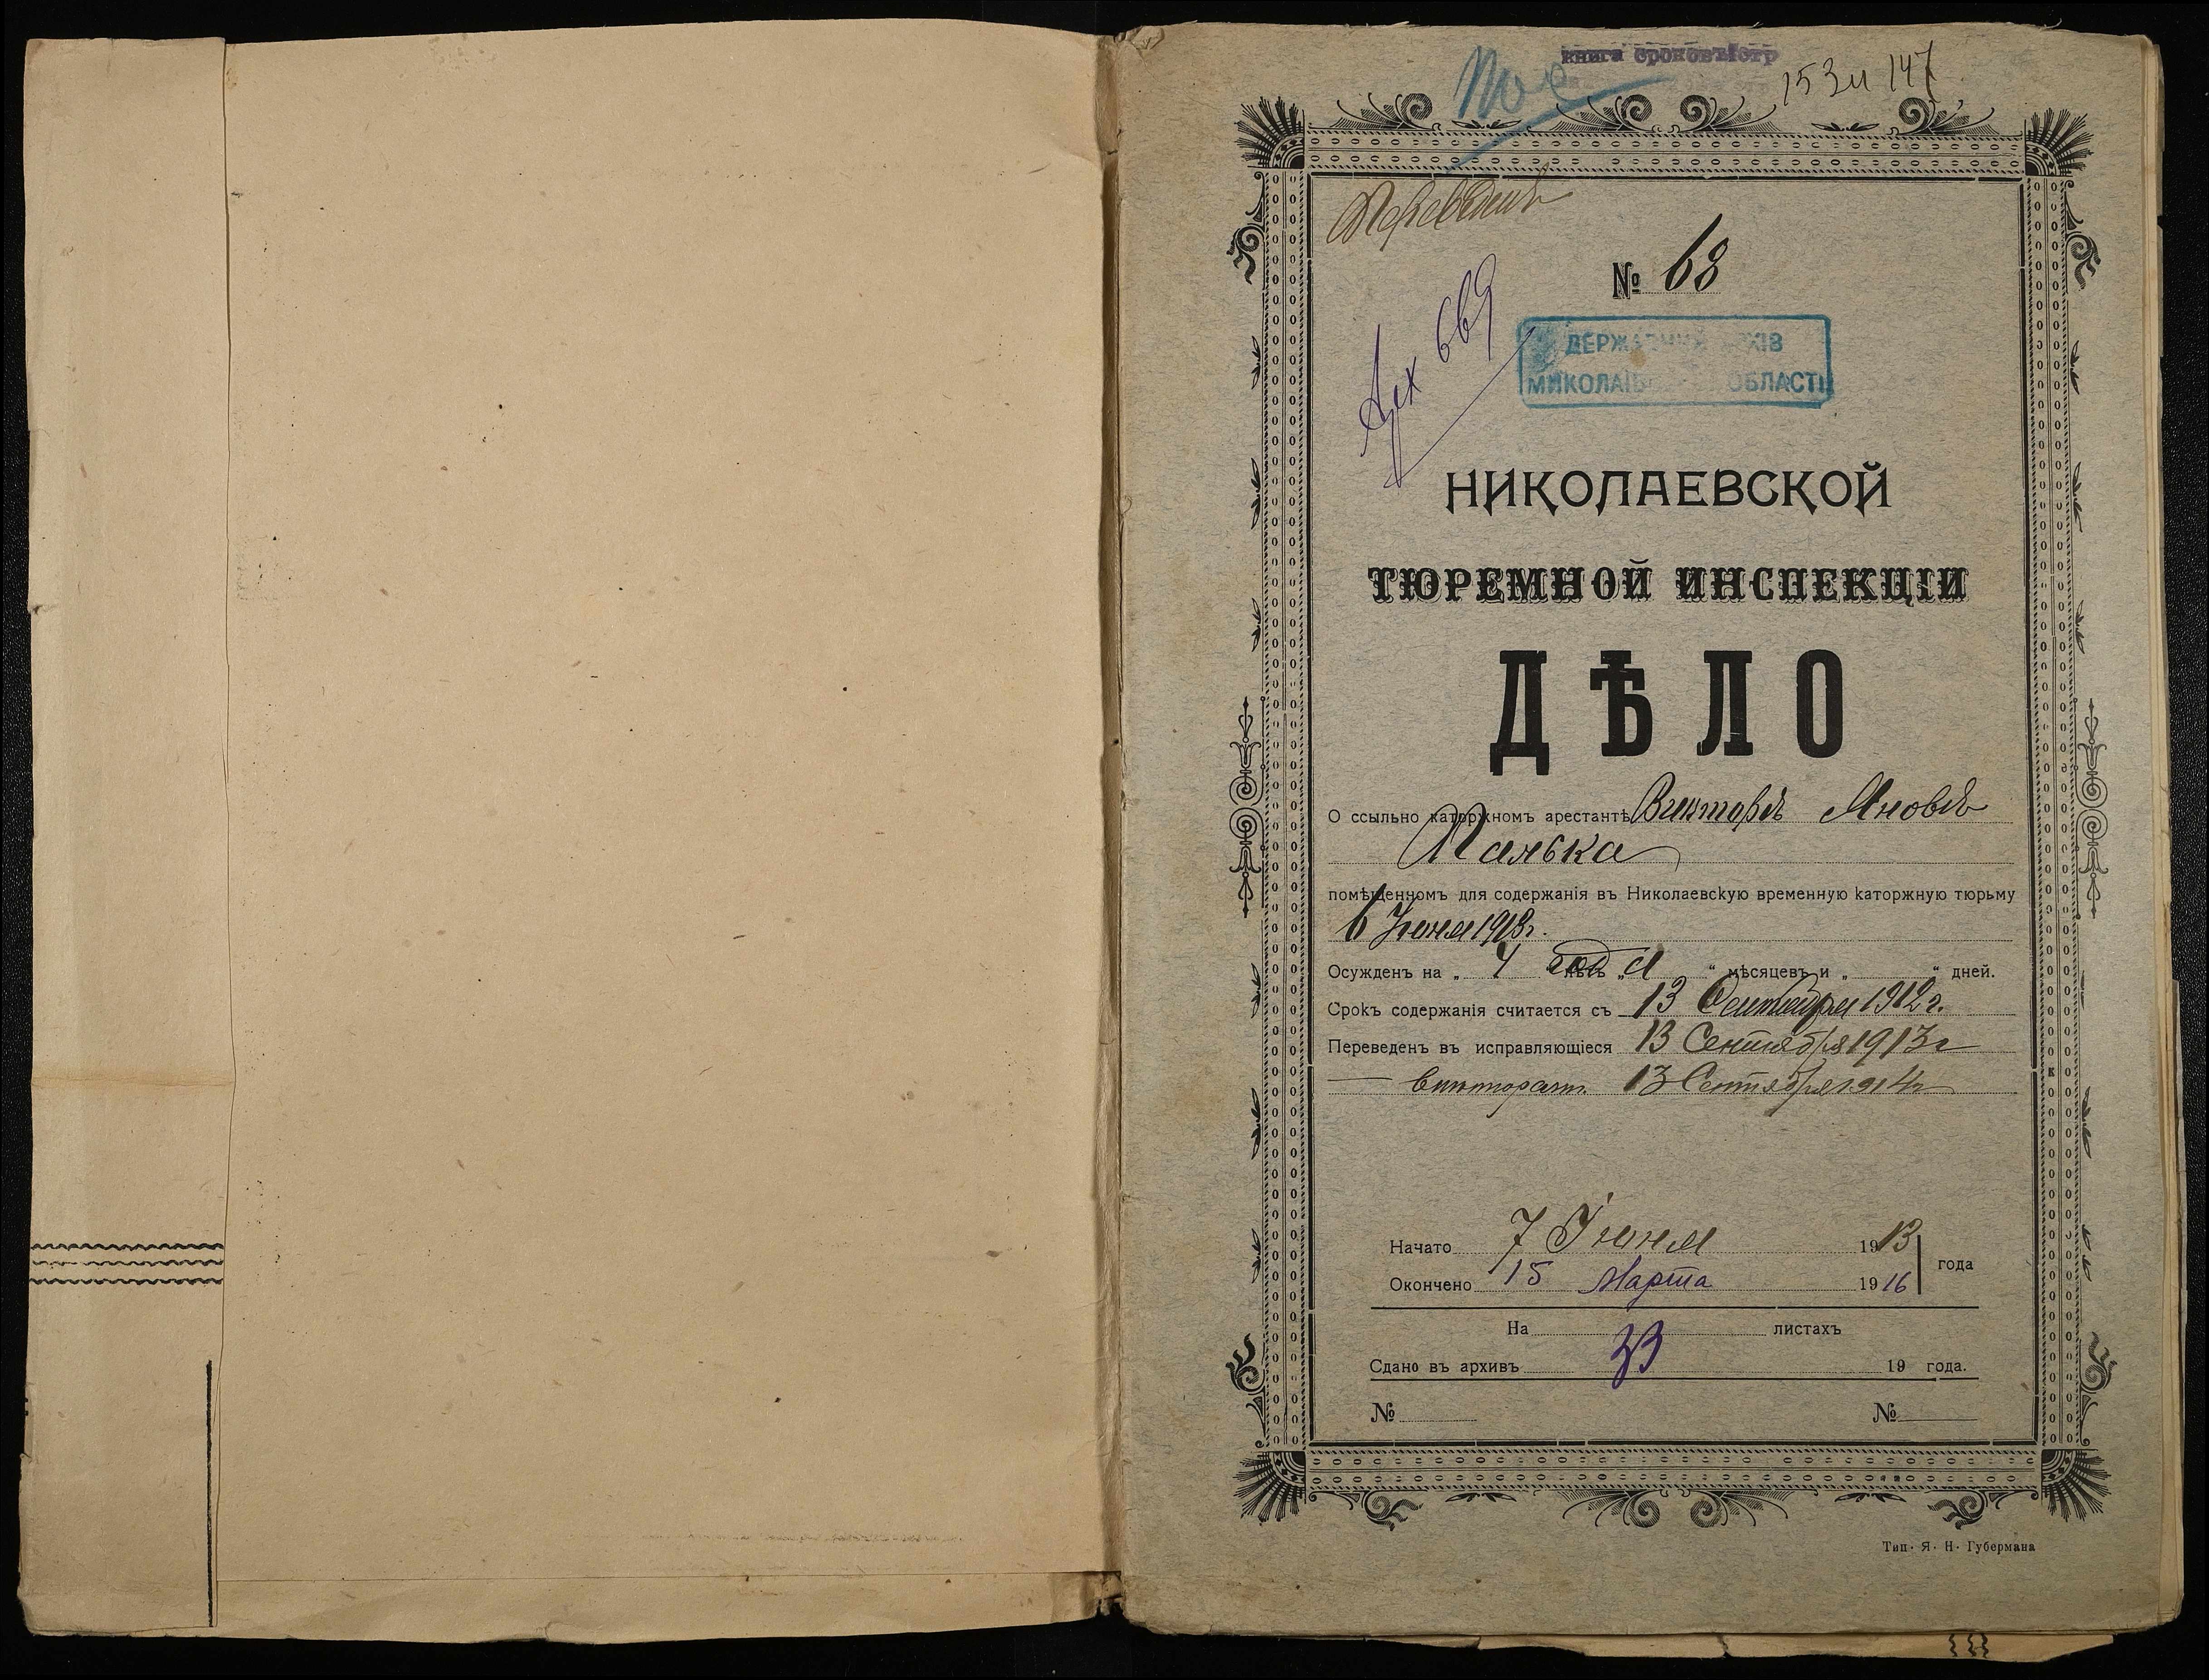 книга сроковъ стр
153 и 147
Переведенъ
№ 68
Арх 669
ДЕРЖАВНИЙ АРХІВ
МИКОЛАЇВСЬКОЇ ОБЛАСТІ
НИКОЛАЕВСКОЙ
ТЮРЕМНОЙ ИНСПЕКЦІИ
ДѢЛО
О ссыльно каторжномъ арестантѣ Викторѣ Яновѣ
помѣщенномъ для содержанія въ Николаевскую временную каторжную тюрьму
6 Іюня 1913г.
Осужденъ на „ 4 года “ мѣсяцевъ и „ “ дней.
Срокъ содержанія считается съ 13 Сентября 1912 г.
Переведенъ въ исправляющіеся 13 Сентября 1913 г
13 Сентября 1914 г
Начато 7 Іюня 1913 года
Окончено 15 Марта 1916
На 33 листахъ
Сдано въ архивъ 19 года.
№ №
Тип. Я. Н. Губермана